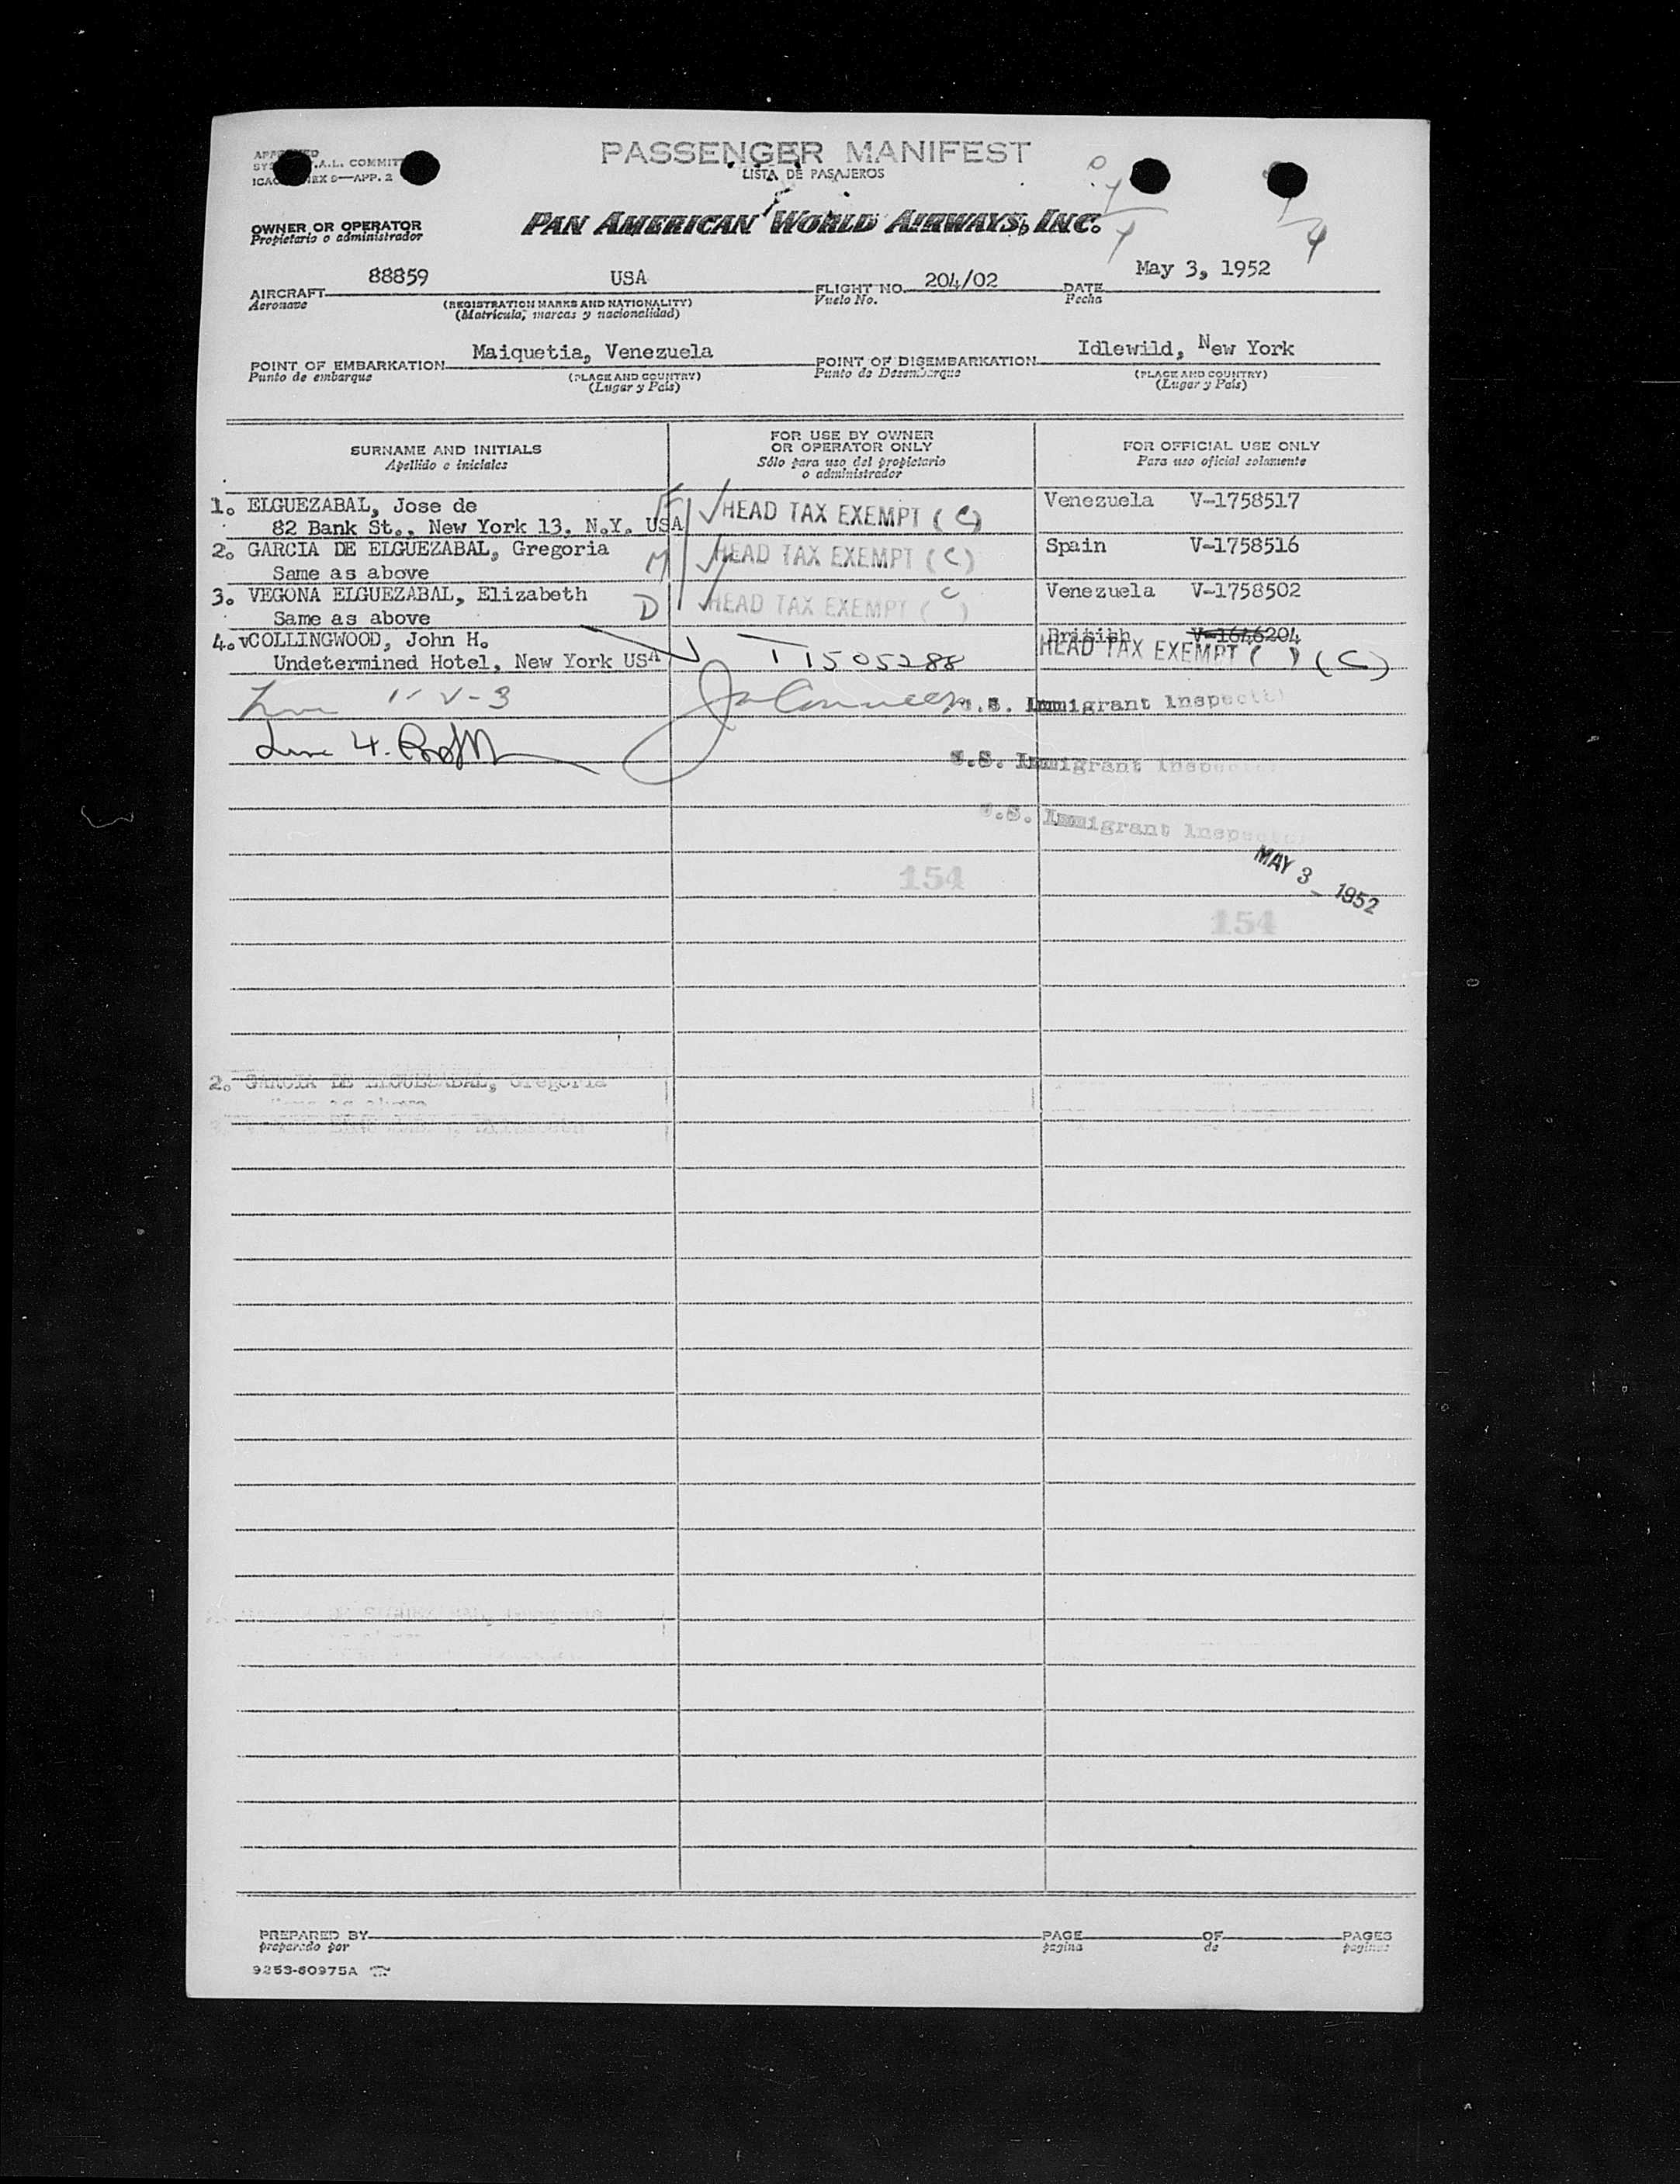 PASSENGER MANIFEST
LISTA DE PASAJEROS
A.L. COMMIT
ICAO 9—APP. 2
OWNER OR OPERATOR
Propietario o administrador
PAN AMERICAN WORLD AIRWAYS, INC.
88859 USA 204/02 May 3, 1952
AIRCRAFT FLIGHT NO. DATE
Aeronave (REGISTRATION MARKS AND NATIONALITY) Vuelo No. Fecha
(Matrícula, marcas y nacionalidad)
Maiquetia, Venezuela Idlewild, New York
POINT OF EMBARKATION POINT OF DISEMBARKATION
Punto de embarque (PLACE AND COUNTRY) Punto de Desembarque (PLACE AND COUNTRY)
(Lugar y País) (Lugar y País)
SURNAME AND INITIALS FOR USE BY OWNER OR OPERATOR ONLY FOR OFFICIAL USE ONLY
Apellido e iniciales Sólo para uso del propietario o administrador Para uso oficial solamente
1. ELGUEZABAL, Jose de HEAD TAX EXEMPT (C) Venezuela V-1758517
82 Bank St., New York 13, N.Y. USA
2. GARCIA DE ELGUEZABAL, Gregoria M HEAD TAX EXEMPT (C) Spain V-1758516
Same as above
3. VEGONA ELGUEZABAL, Elizabeth D HEAD TAX EXEMPT (C) Venezuela V-1758502
Same as above
4. vCOLLINGWOOD, John H. T1505288 British V-1646204
Undetermined Hotel, New York USA HEAD TAX EXEMPT ( ) (C)
Line 1-V-3 U.S. Immigrant Inspector
Line 4.
U.S. Immigrant Inspector
U.S. Immigrant Inspector
MAY 3 1952
154
154
2. GARCIA DE ELGUEZABAL, Gregoria
PREPARED BY PAGE OF PAGES
preparado por página de páginas
9253-60975A